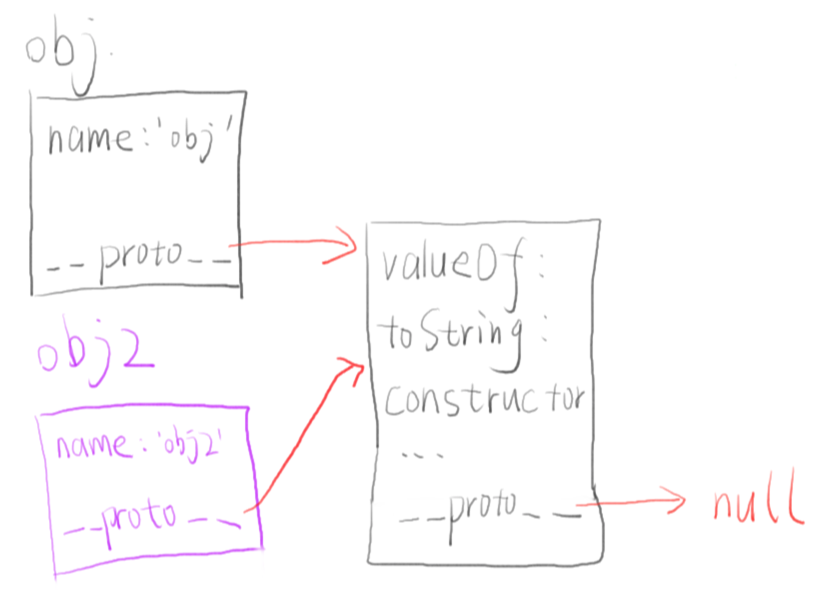 obj.
name:'obj'
__proto__
obj2
name:'obj2'
__proto__
valueOf:
toString:
constructor
...
__proto__
null